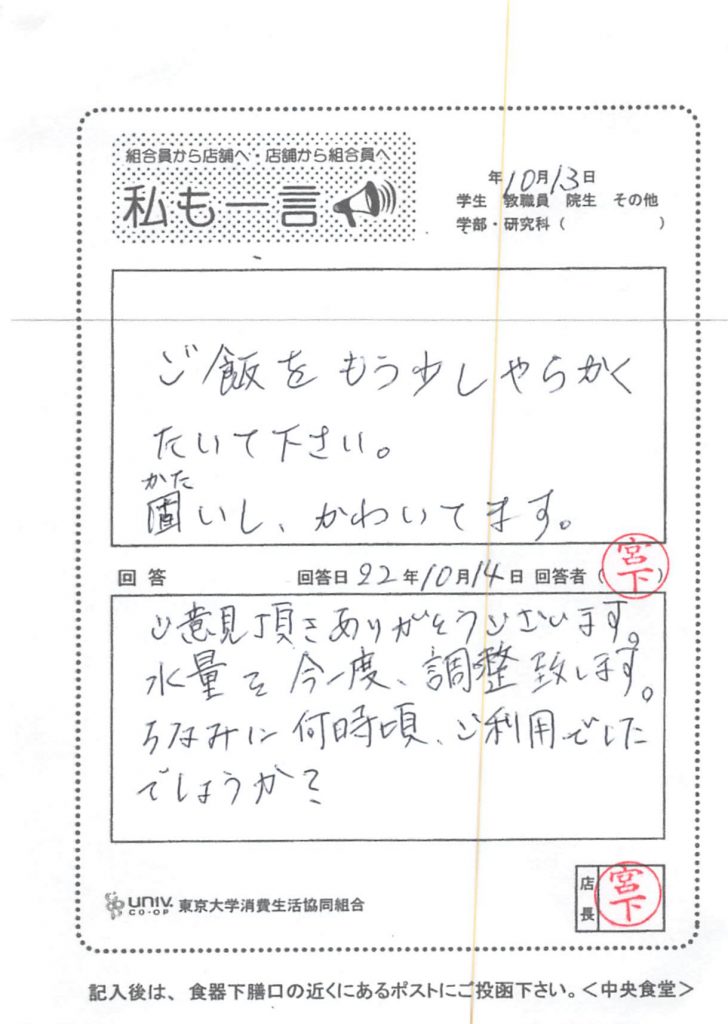 組合員から店舗へ・店舗から組合員へ
私も一言
年10月13日
学生 教職員 院生 その他
学部・研究科( )
ご飯をもう少しやらかく
たいて下さい。
かた
固いし、かわいてます。
回答 回答日 22年10月14日 回答者(宮下)
ご意見頂きありがとうございます。
水量を今一度、調整致します。
ちなみに何時頃、ご利用でした
でしょうか?
UNIV. CO-OP 東京大学消費生活協同組合
店長 宮下
記入後は、食器下膳口の近くにあるポストにご投函下さい。<中央食堂>